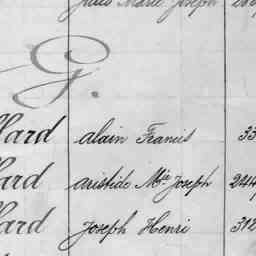 Jules Marie Joseph
G.
lard alain Francis 33
lard aristide Mie Joseph 244
lard Joseph Henri 312